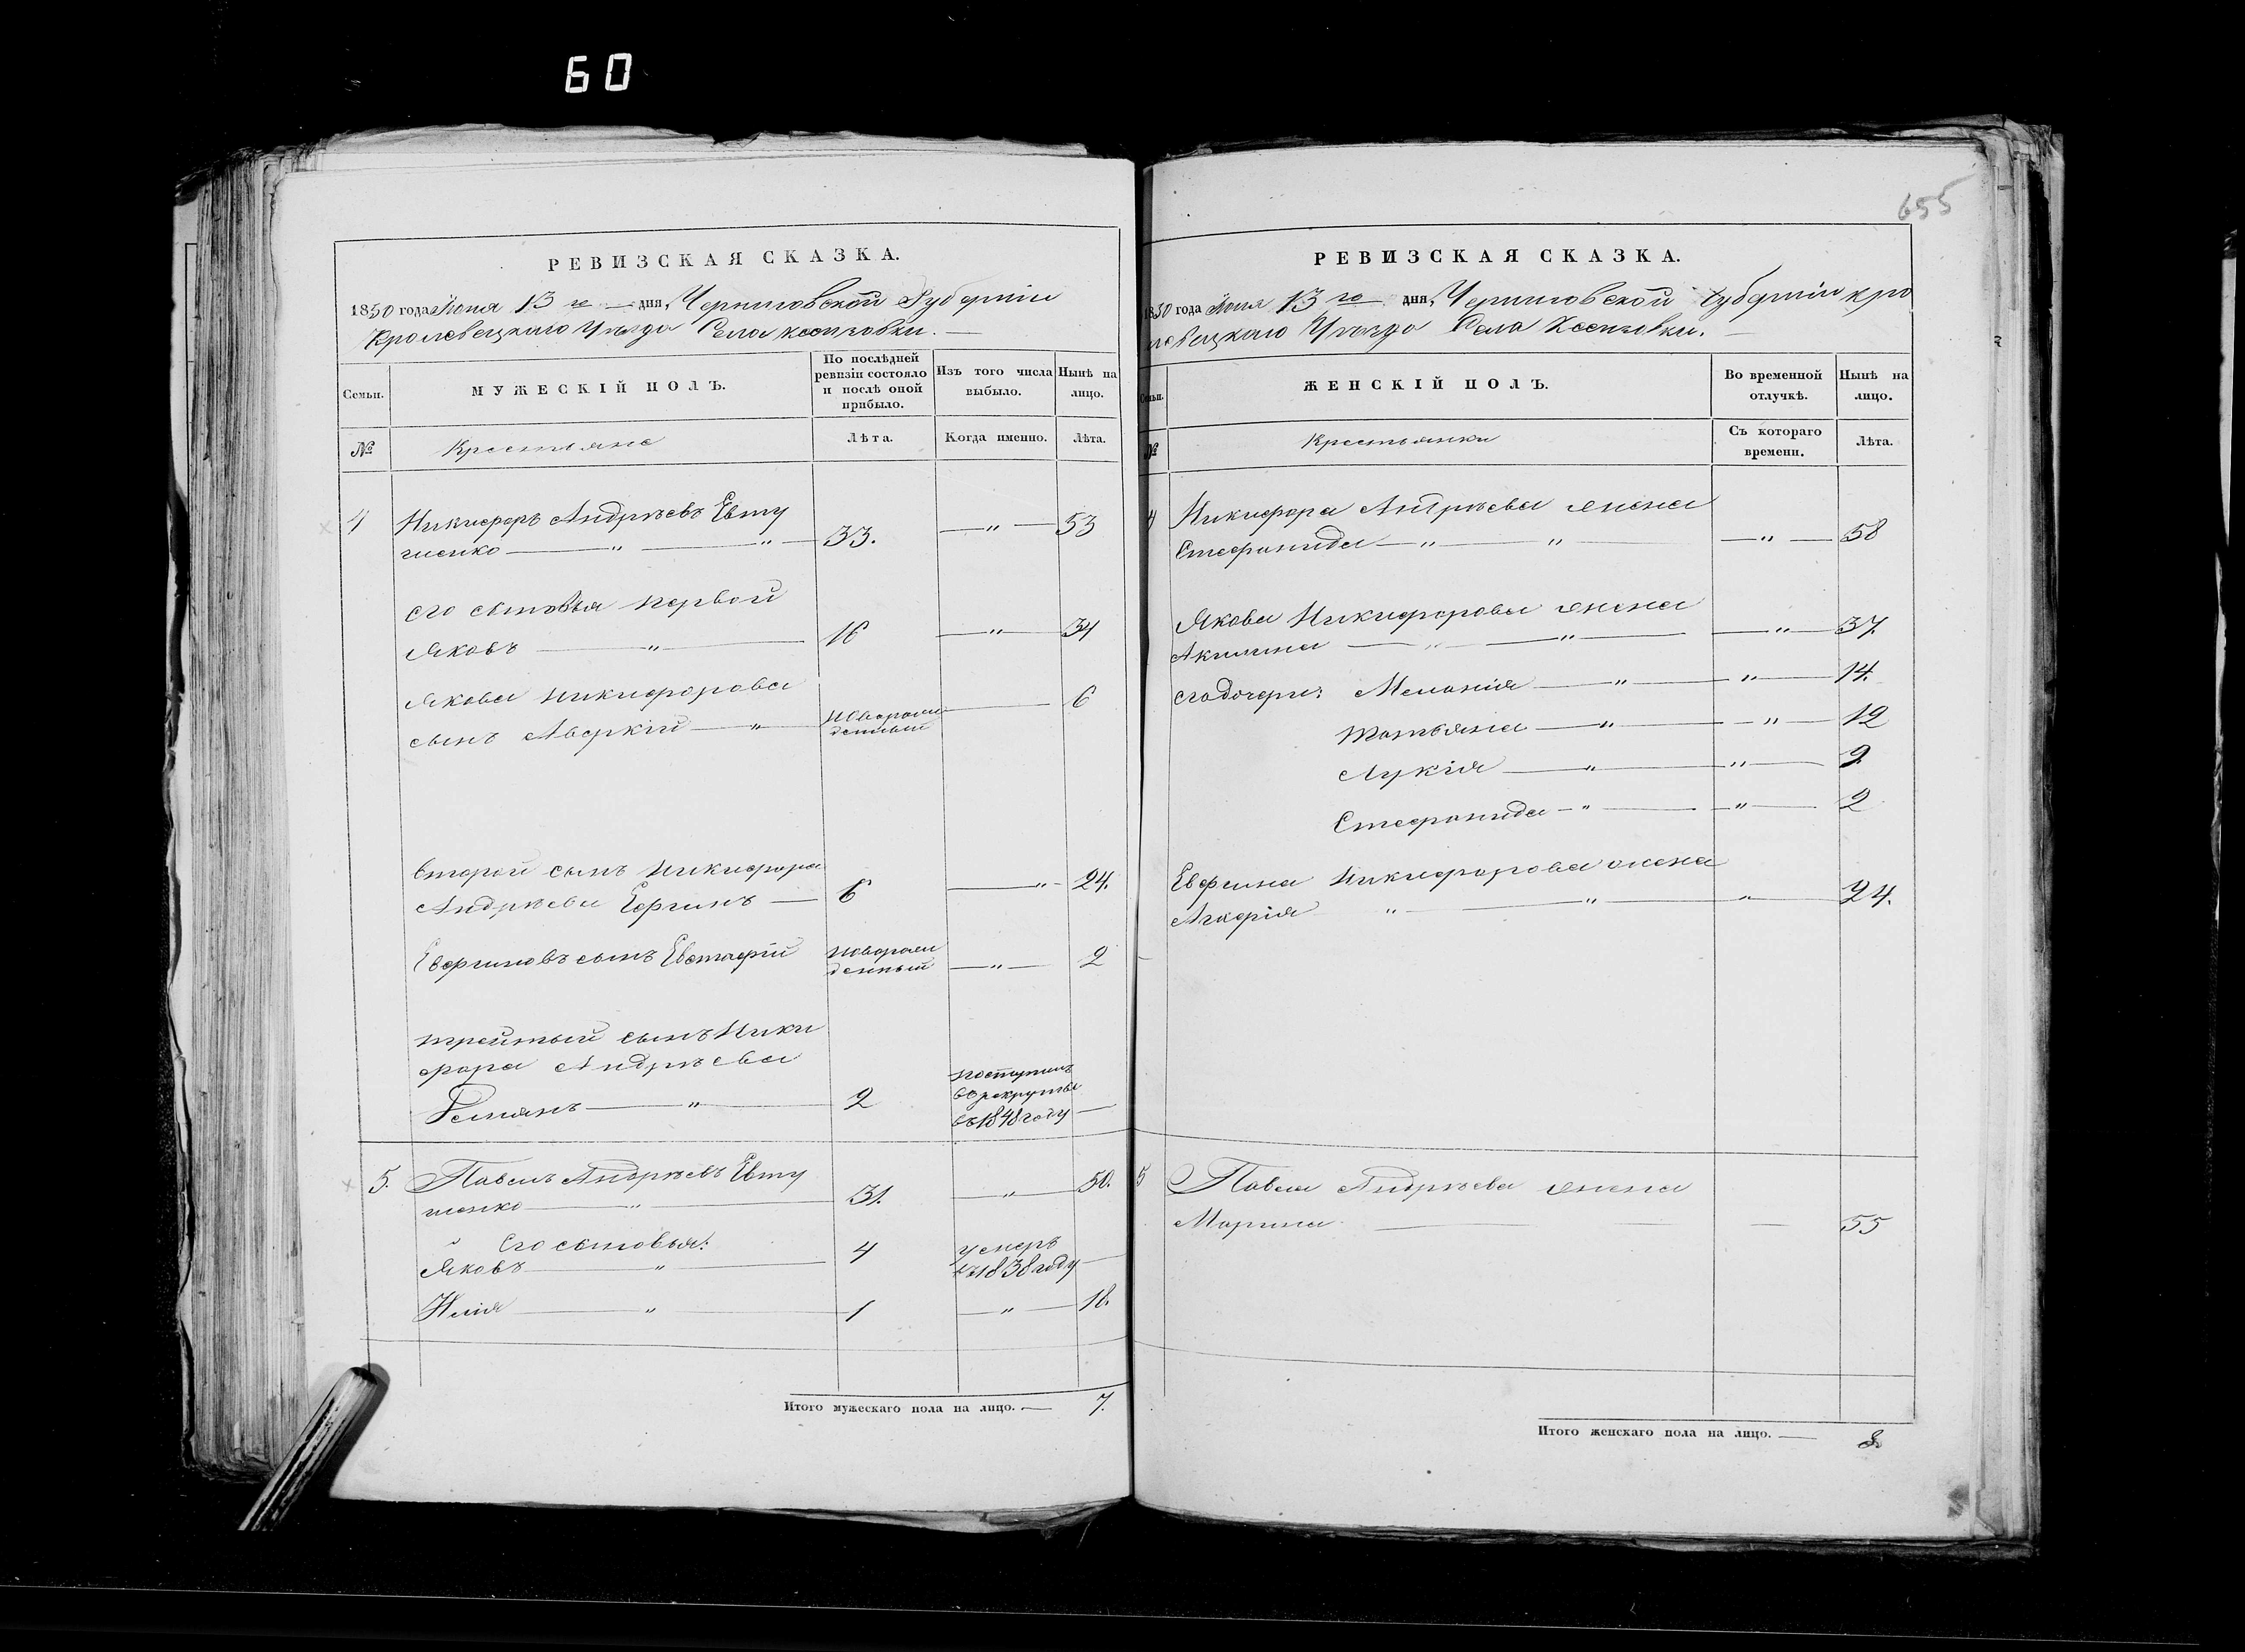 60
655
РЕВИЗСКАЯ СКАЗКА.
1850 года Іюня 13 го дня, Черниговской Губерніи
Кролевецкаго Уѣзда Села
Семьи.
МУЖЕСКІЙ ПОЛЪ.
По послѣдней ревизіи состояло и послѣ оной прибыло.
Изъ того числа выбыло.
Нынѣ на лицо.
№
Крестьяне
Лѣта.
Когда именно.
Лѣта.
4 Никифоръ Андрѣевъ Евту
шенко — " — " — 33. — " — 53
его сыновья первой
Яковъ — " — 16 — " — 34
Якова Никифорова
сынъ Аверкій — " новорожденный — 6
второй сынъ Никифора
Андрѣева Ефимъ — 6 — " — 24.
Евфимовъ сынъ Евстафій новорожденный — " — 2
третый сынъ Ники
фора Андрѣева
Демьянъ — " — 2 поступилъ въ рекруты въ 1848 году —
5. Павелъ Андрѣевъ Евту
шенко — " — 31. — " — 50.
" Его сыновья:
Яковъ — " — 4 умеръ въ 1838 году —
Илія — " — 1 — " — 18.
Итого мужескаго пола на лицо. — 7.
РЕВИЗСКАЯ СКАЗКА.
1850 года Іюня 13 го дня, Черниговской Губерніи Кро
левецкаго Уѣзда Села
Семьи.
ЖЕНСКІЙ ПОЛЪ.
Во временной отлучкѣ.
Нынѣ на лицо.
№
Крестьянки
Съ котораго времени.
Лѣта.
4 Никифора Андрѣева жена
Стефанида — " — " — " — 58
Якова Никифорова жена
Акилина — " — " — " — 37.
его дочери: Меланія — " — " — 14.
Татьяна — " — " — 12
Лукія — " — " — 9
Стефанида — " — " — 2
Евфима Никифорова жена
Гликерія " — " — " — 24.
5 Павла Андрѣева жена
Марина — — 55
Итого женскаго пола на лицо. — 8.